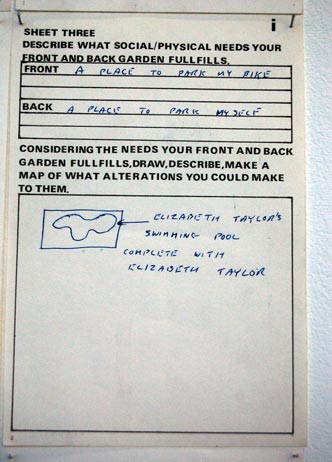 i
SHEET THREE
DESCRIBE WHAT SOCIAL/PHYSICAL NEEDS YOUR
FRONT AND BACK GARDEN FULLFILLS.
FRONT A PLACE TO PARK MY BIKE
BACK A PLACE TO PARK MYSELF
CONSIDERING THE NEEDS YOUR FRONT AND BACK
GARDEN FULLFILLS,DRAW,DESCRIBE,MAKE A
MAP OF WHAT ALTERATIONS YOU COULD MAKE
TO THEM.
ELIZABETH TAYLOR'S
SWIMMING POOL
COMPLETE WITH
ELIZABETH TAYLOR